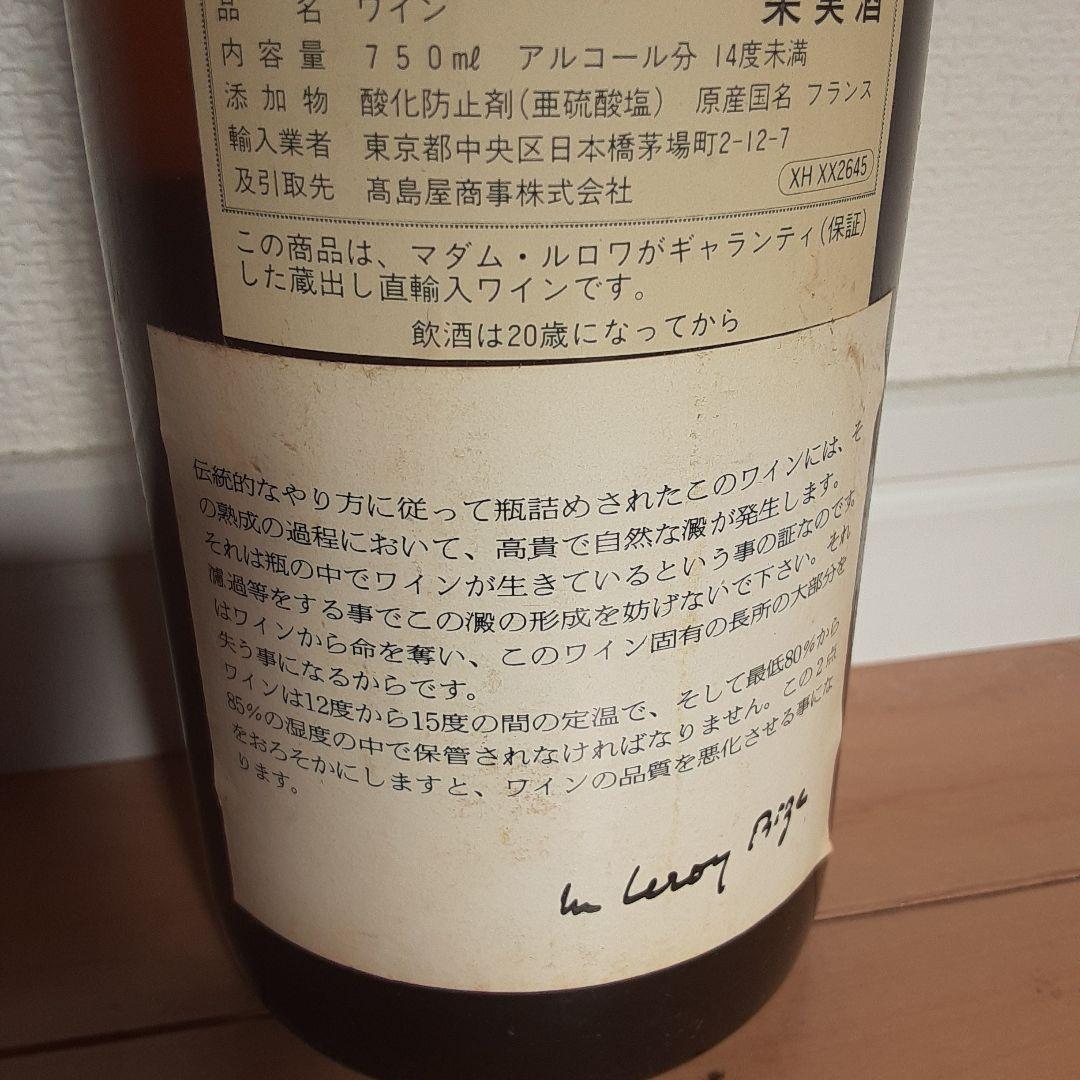 品名 ワイン 果実酒
内容量 750ml アルコール分 14度未満
添加物 酸化防止剤(亜硫酸塩) 原産国名 フランス
輸入業者 東京都中央区日本橋茅場町2-12-7
及引取先 髙島屋商事株式会社 XH XX2645
この商品は、マダム・ルロワがギャランティ(保証)
した蔵出し直輸入ワインです。
飲酒は20歳になってから
伝統的なやり方に従って瓶詰めされたこのワインには、そ
の熟成の過程において、高貴で自然な澱が発生します。
それは瓶の中でワインが生きているという事の証なのです。
濾過等をする事でこの澱の形成を妨げないで下さい。それ
はワインから命を奪い、このワイン固有の長所の大部分を
失う事になるからです。
ワインは12度から15度の間の定温で、そして最低80%から
85%の湿度の中で保管されなければなりません。この2点
をおろそかにしますと、ワインの品質を悪化させる事にな
ります。
Leroy Bize